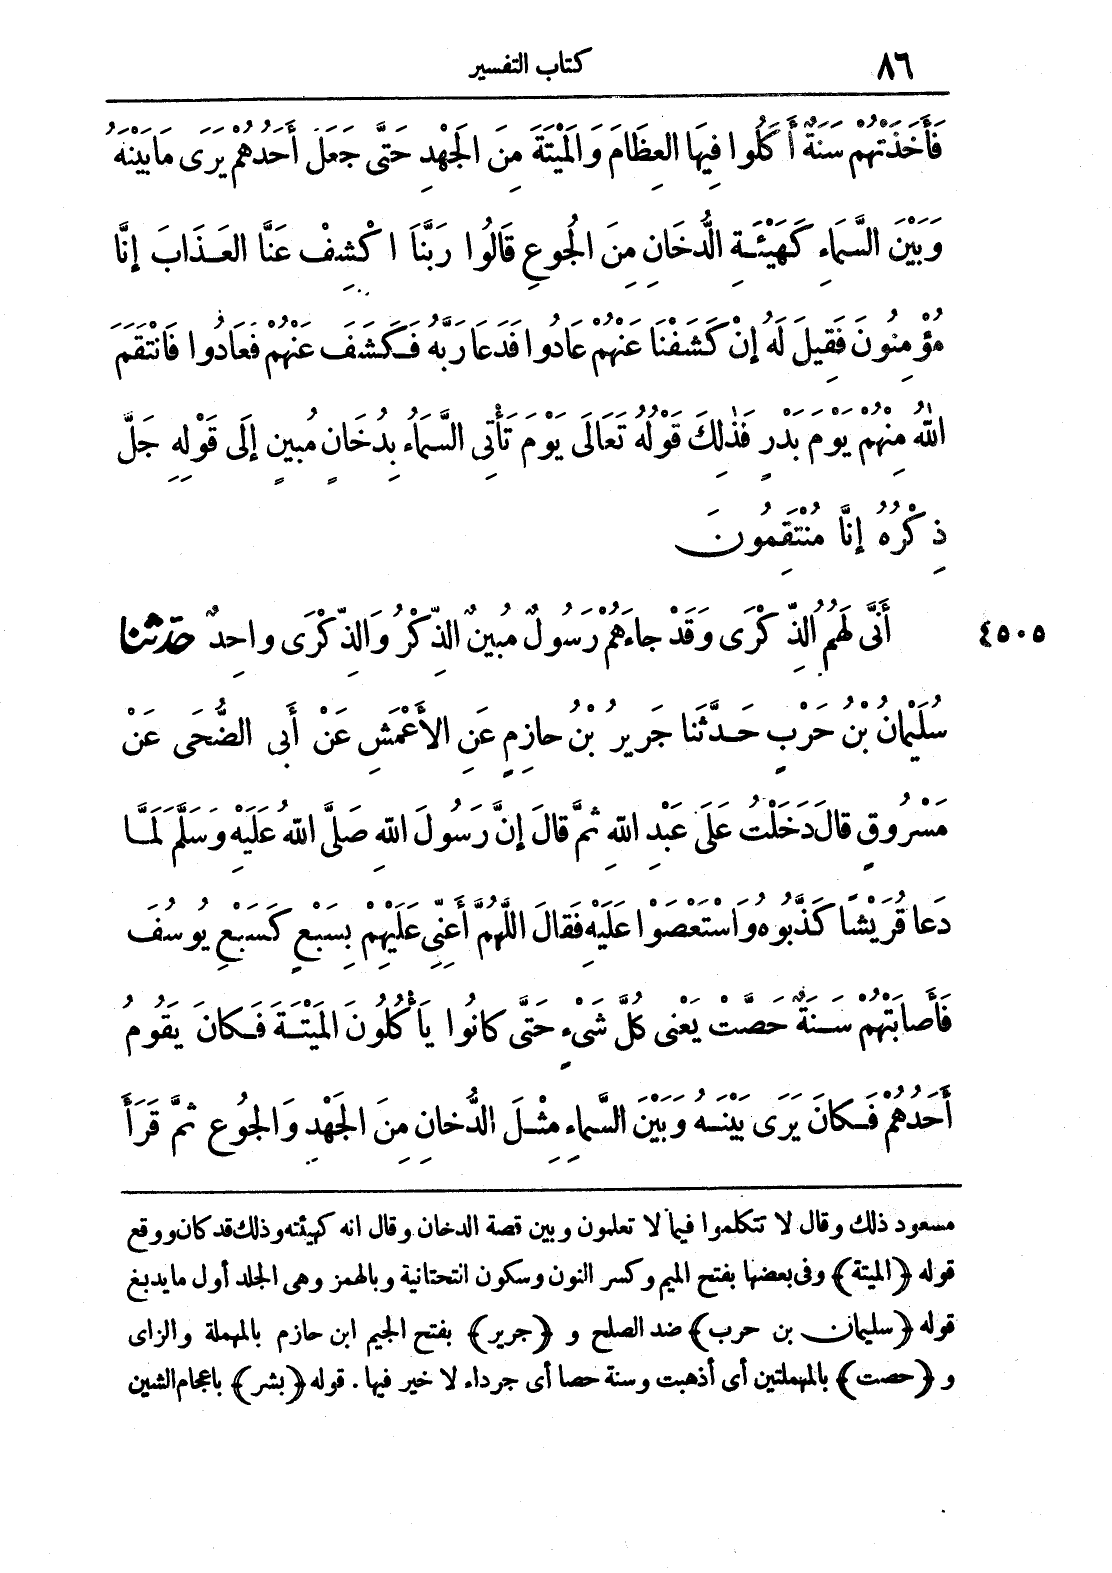 ٨٦
كتاب التفسير
فَأَخَذَتْهُمْ سَنَةٌ أَكَلُوا فِيهَا العِظَامَ وَالمَيْتَةَ مِنَ الجَهْدِ حَتَّى جَعَلَ أَحَدُهُمْ يَرَى مابَيْنَهُ
وَبَيْنَ السَّمَاءِ كَهَيْئَةِ الدُّخَانِ مِنَ الجُوعِ قَالُوا رَبَّنَا اكْشِفْ عَنَّا العَذَابَ إِنَّا
مُؤْمِنُونَ فَقِيلَ لَهُ إِنْ كَشَفْنَا عَنْهُمْ عَادُوا فَدَعَا رَبَّهُ فَكَشَفَ عَنْهُمْ فَعَادُوا فَانْتَقَمَ
اللهُ مِنْهُمْ يَوْمَ بَدْرٍ فَذٰلِكَ قَوْلُهُ تَعَالَى يَوْمَ تَأْتِى السَّمَاءُ بِدُخَانٍ مُبِينٍ إِلَى قَوْلِهِ جَلَّ
ذِكْرُهُ إِنَّا مُنْتَقِمُونَ
٤٥٠٥ أَنَّى لَهُمُ الذِّكْرَى وَقَدْ جاءَهُمْ رَسُولٌ مُبِينٌ الذِّكْرُ وَالذِّكْرَى واحِدٌ حَدَّثَنا
سُلَيْمانُ بْنُ حَرْبٍ حَدَّثَنا جَرِيرُ بْنُ حازِمٍ عَنِ الأَعْمَشِ عَنْ أَبى الضُّحَى عَنْ
مَسْرُوقٍ قالَ دَخَلْتُ عَلَى عَبْدِ اللهِ ثُمَّ قالَ إِنَّ رَسُولَ اللهِ صَلَّى اللهُ عَلَيْهِ وَسَلَّمَ لَمَّا
دَعا قُرَيْشًا كَذَّبُوهُ وَاسْتَعْصَوْا عَلَيْهِ فَقالَ اللَّهُمَّ أَعِنِّى عَلَيْهِمْ بِسَبْعٍ كَسَبْعِ يُوسُفَ
فَأَصابَتْهُمْ سَنَةٌ حَصَّتْ يَعْنى كُلَّ شَىْءٍ حَتَّى كانُوا يَأْكُلُونَ المَيْتَةَ فَكانَ يَقُومُ
أَحَدُهُمْ فَكانَ يَرَى بَيْنَهُ وَبَيْنَ السَّماءِ مِثْلَ الدُّخانِ مِنَ الجَهْدِ وَالجُوعِ ثُمَّ قَرَأَ
مسعود ذلك وقال لا تتكلموا فيما لا تعلمون وبين قصة الدخان وقال انه كهيئته وذلك قد كان ووقع
قوله ﴿الميتة﴾ وفى بعضها بفتح الميم وكسر النون وسكون التحتانية وبالهمز وهى الجلد أول ما يدبغ
قوله ﴿سليمان بن حرب﴾ ضد الصلح و ﴿جرير﴾ بفتح الجيم ابن حازم بالمهملة والزاى
و ﴿حصت﴾ بالمهملتين أى أذهبت وسنة حصا أى جرداء لا خير فيها . قوله ﴿بشر﴾ باعجام الشين